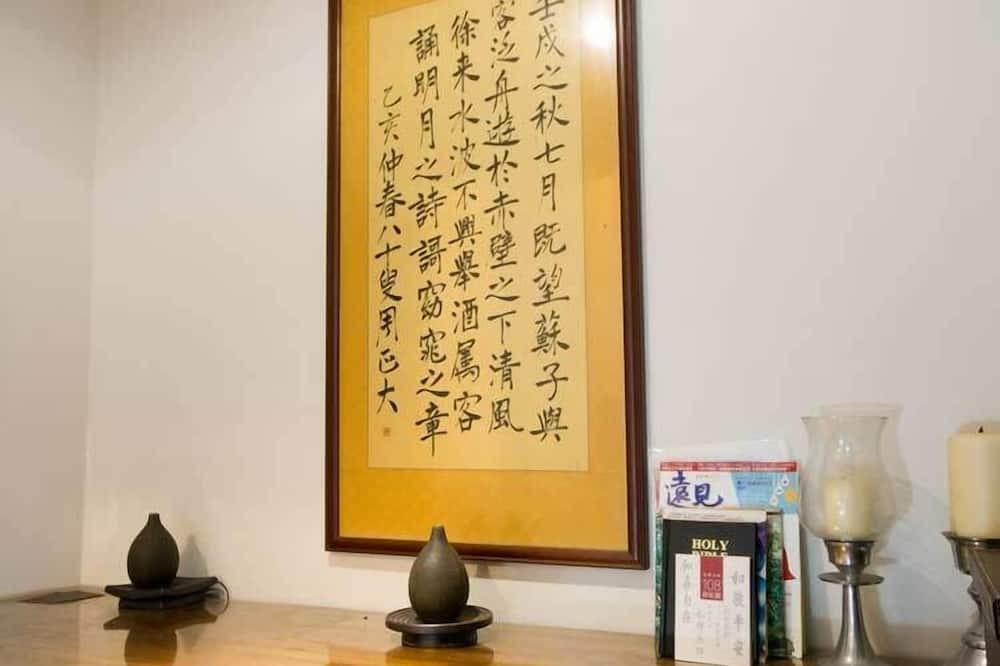 壬戌之秋七月既望蘇子與
客泛舟遊於赤壁之下清風
徐来水波不興舉酒属客
誦明月之詩謌窈窕之章
乙亥仲春八十叟周正大
遠見
HOLY
BIBLE
108
和敬平安